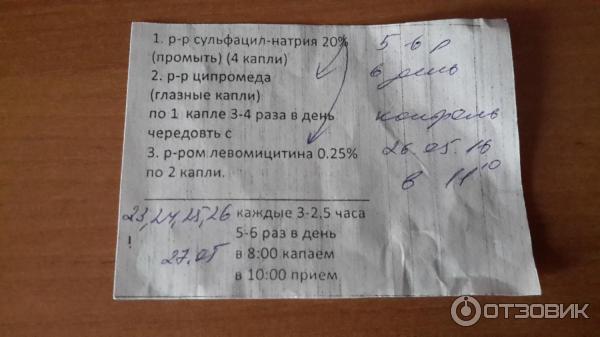 1. р-р сульфацил-натрия 20%
(промыть) (4 капли)
2. р-р ципромеда
(глазные капли)
по 1 капле 3-4 раза в день
чередовть с
3. р-ром левомицитина 0.25%
по 2 капли.
5-6 р
в день
контроль
26.05.16
в 11 10
23,24,25,26
!
27.05
каждые 3-2,5 часа
5-6 раз в день
в 8:00 капаем
в 10:00 прием
ОТЗОВИК